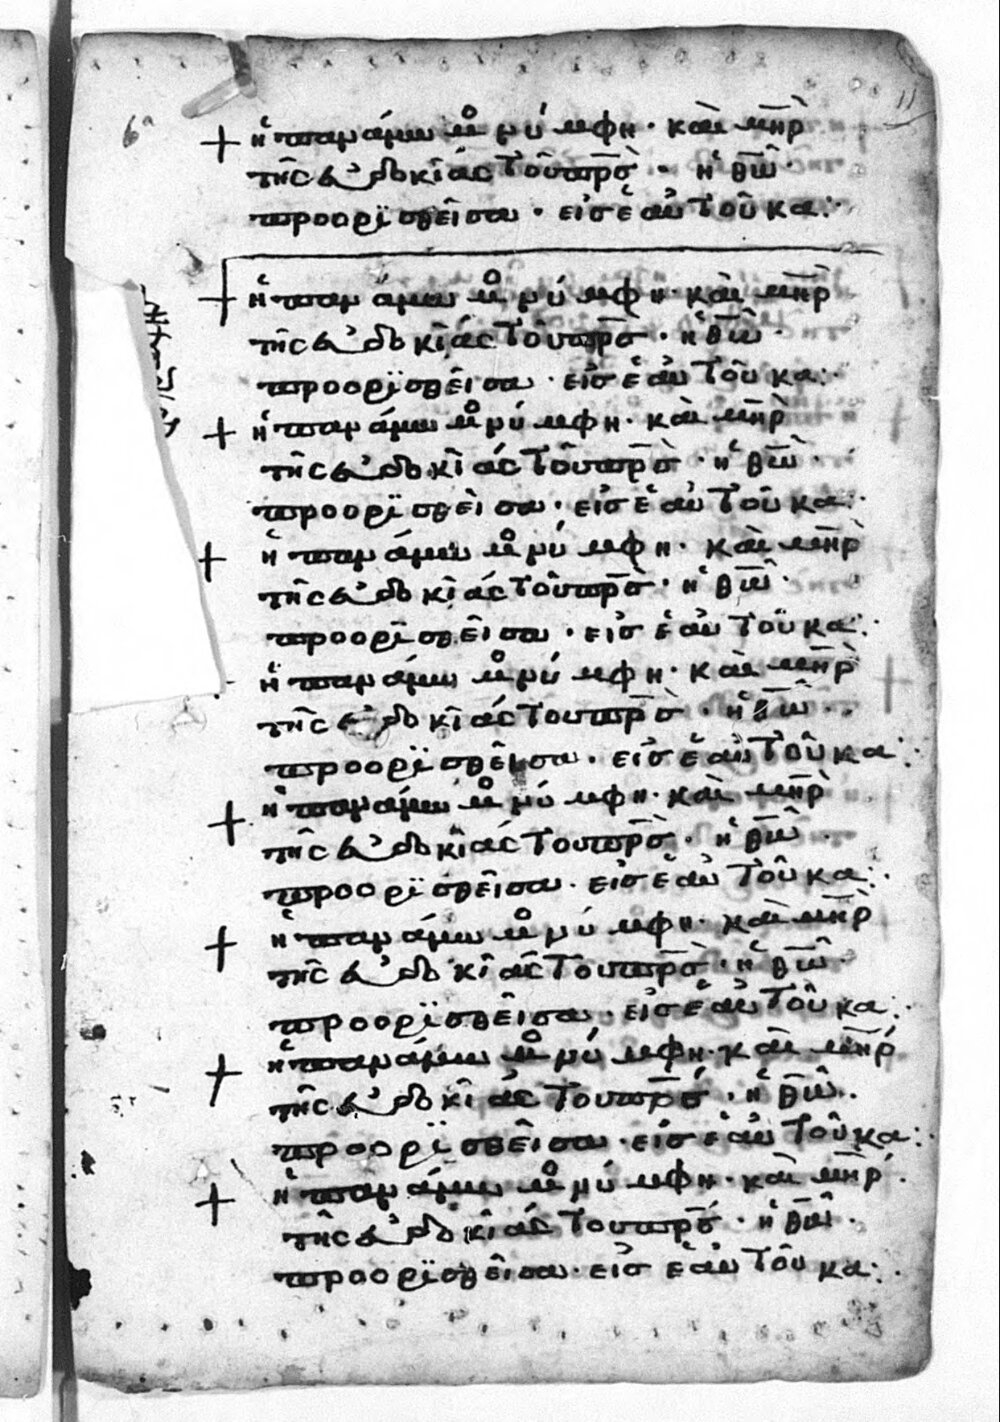 6ᵃ 11
+ ἡ παμάμω μ̊ρύμφη· καὶ μ̅η̅ρ̀
τῆς εὐδοκίας τοῦ π̅ρ̅σ̀· ἡ θ̅ω̅̂·
προορϊσθεῖσα· εἰσ ἑαυτοῦ κα:·
+ ἡ παμάμω μ̊ρύμφη· καὶ μ̅η̅ρ̀
τῆς εὐδοκίας τοῦ π̅ρ̅σ̀· ἡ θ̅ω̅̂·
προορϊσθεῖσα· εἰσ ἑαυτοῦ κα:·
+ ἡ παμάμω μ̊ρύμφη· καὶ μ̅η̅ρ̀
τῆς εὐδοκίας τοῦ π̅ρ̅σ̀· ἡ θ̅ω̅̂·
προορϊσθεῖσα· εἰσ ἑαυτοῦ κα:·
+ ἡ παμάμω μ̊ρύμφη· καὶ μ̅η̅ρ̀
τῆς εὐδοκίας τοῦ π̅ρ̅σ̀· ἡ θ̅ω̅̂·
προορϊσθεῖσα· εἰσ ἑαυτοῦ κα:·
ἡ παμάμω μ̊ρύμφη· καὶ μ̅η̅ρ̀
τῆς εὐδοκίας του π̅ρ̅σ̀· ἡ θ̅ω̅̂·
προορϊσθεῖσα· εἰσ ἑαυτοῦ κα:·
+ ἡ παμάμω μ̊ρύμφη· καὶ μ̅η̅ρ̀
τῆς εὐδοκίας του π̅ρ̅σ̀· ἡ θ̅ω̅̂·
προορϊσθεῖσα· εἰσ ἑαυτοῦ κα:·
+ ἡ παμάμω μ̊ρύμφη· καὶ μ̅η̅ρ̀
τῆς εὐδοκίας του π̅ρ̅σ̀· ἡ θ̅ω̅̂·
προορϊσθεῖσα· εἰσ ἑαυτοῦ κα:·
+ ἡ παμάμω μ̊ρύμφη· καὶ μ̅η̅ρ́
τῆς εὐδοκίας του π̅ρ̅σ́· ἡ θ̅ω̅̂·
προορϊσθεῖσα· εἰσ ἑαυτοῦ κα:·
+ ἡ παμάμω μ̊ρύμφη· καὶ μ̅η̅ρ́·
τῆς εὐδοκίας του π̅ρ̅σ́· ἡ θ̅ω̅̂·
προορϊσθεῖσα· εἰσ ἑαυτοῦ κα:·